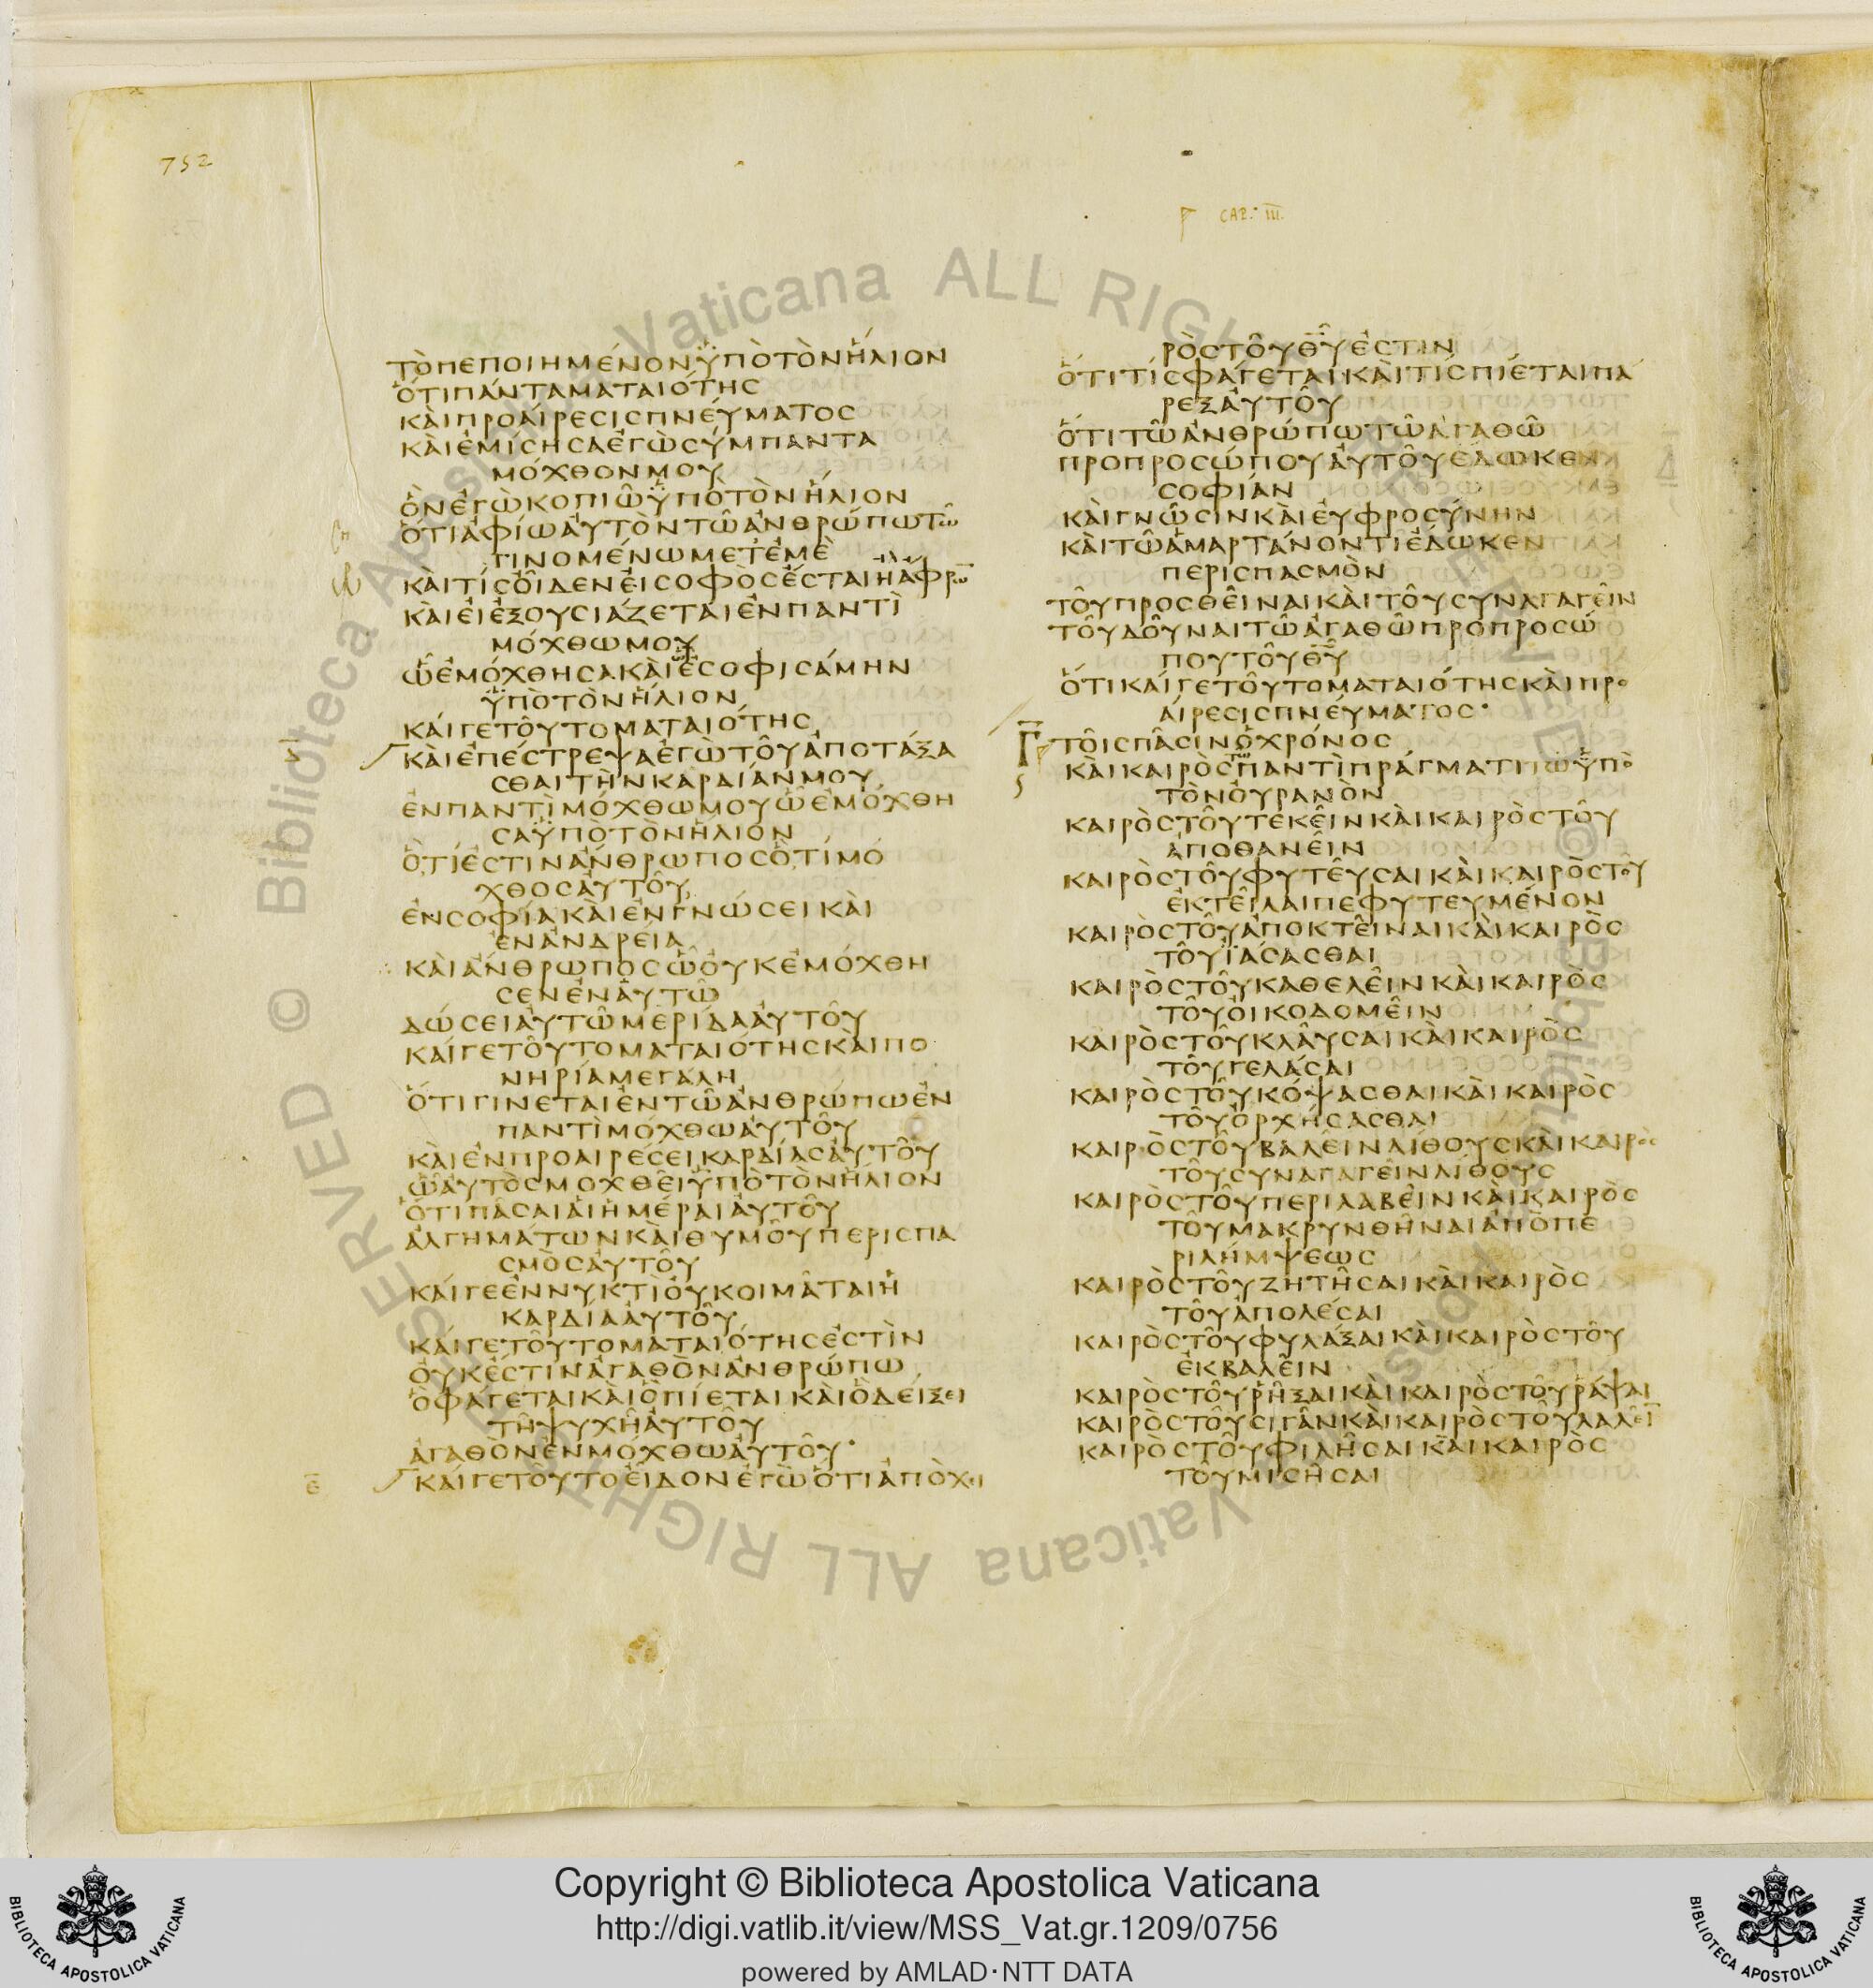 752
Γ CAP. III.
τὸ πεποιημένον ὑπὸ τὸν ἥλιον
ὅτι πάντα ματαιότης
καὶ προαίρεσις πνεύματος
καὶ ἐμίσησα ἐγὼ σύμπαντα
μόχθον μου
ὃν ἐγὼ κοπιῶ ὑπὸ τὸν ἥλιον
ὅτι ἀφίω αὐτὸν τῶ ἀνθρώπω τῶ
γινομένω μετ ἐμὲ
καὶ τίς οἶδεν εἰ σοφὸς ἔσται ἢ ἄφρω
καὶ εἰ ἐξουσιάζεται ἐν παντὶ
μόχθω μου
ᾧ ἐμόχθησα καὶ ᾧ ἐσοφισάμην
ὑπὸ τὸν ἥλιον
καίγε τοῦτο ματαιότης
καὶ ἐπέστρεψα ἐγὼ τοῦ ἀποτάξα
σθαι τὴν καρδίαν μου
ἐν παντὶ μόχθω μου ᾧ ἐμόχθη
σα ὑπὸ τὸν ἥλιον
ὅτι ἔστιν ἄνθρωπος ὅτι μό
χθος αὐτοῦ
ἐν σοφία καὶ ἐν γνώσει καὶ
ἐν ἀνδρεία
καὶ ἄνθρωπος ᾧ οὐκ ἐμόχθη
σεν ἐν αὐτῶ
δώσει αὐτῶ μερίδα αὐτοῦ
καίγε τοῦτο ματαιότης καὶ πο
νηρία μεγάλη
ὅτι γίνεται ἐν τῶ ἀνθρώπω ἐν
παντὶ μόχθω αὐτοῦ
καὶ ἐν προαιρέσει καρδίας αὐτοῦ
ᾧ αὐτὸς μοχθεῖ ὑπὸ τὸν ἥλιον
ὅτι πᾶσαι αἱ ἡμέραι αὐτοῦ
ἀλγημάτων καὶ θυμοῦ περισπα
σμὸς αὐτοῦ
καίγε ἐν νυκτὶ οὐ κοιμᾶται ἡ
καρδία αὐτοῦ
καίγε τοῦτο ματαιότης ἐστὶν
οὐκ ἔστιν ἀγαθὸν ἀνθρώπω
ὃ φάγεται καὶ ὃ πίεται καὶ ὃ δείξει
τῇ ψυχῇ αὐτοῦ
ἀγαθὸν ἐν μόχθω αὐτοῦ·
Ε καίγε τοῦτο εἶδον ἐγὼ ὅτι ἀπὸ χει
ρὸς τοῦ θῦ ἐστιν
ὅτι τίς φάγεται καὶ τίς πίεται πα
ρὲξ αὐτοῦ
ὅτι τῶ ἀνθρώπω τῶ ἀγαθῶ
προ προσώπου αὐτοῦ ἔδωκεν
σοφίαν
καὶ γνῶσιν καὶ εὐφροσύνην
καὶ τῶ ἁμαρτάνοντι ἔδωκεν
περισπασμὸν
τοῦ προσθεῖναι καὶ τοῦ συναγαγεῖν
τοῦ δοῦναι τῶ ἀγαθῶ πρὸ προσώ
που τοῦ θῦ
ὅτι καίγε τοῦτο ματαιότης καὶ προ
αίρεσις πνεύματος·
Γ τοῖς πᾶσιν ὁ χρόνος
καὶ καιρὸς τῶ παντὶ πράγματι τῶ ὑπὸ
τὸν οὐρανὸν
καιρὸς τοῦ τεκεῖν καὶ καιρὸς τοῦ
ἀποθανεῖν
καιρὸς τοῦ φυτεῦσαι καὶ καιρὸς τοῦ
ἐκτεῖλαι πεφυτευμένον
καιρὸς τοῦ ἀποκτεῖναι καὶ καιρὸς
τοῦ ἰάσασθαι
καιρὸς τοῦ καθελεῖν καὶ καιρὸς
τοῦ οἰκοδομεῖν
καιρὸς τοῦ κλαῦσαι καὶ καιρὸς
τοῦ γελάσαι
καιρὸς τοῦ κόψασθαι καὶ καιρὸς
τοῦ ὀρχήσασθαι
καιρὸς τοῦ βαλεῖν λίθους καὶ καιρὸς
τοῦ συναγαγεῖν λίθους
καιρὸς τοῦ περιλαβεῖν καὶ καιρὸς
τοῦ μακρυνθῆναι ἀπὸ πε
ριλήμψεως
καιρὸς τοῦ ζητῆσαι καὶ καιρὸς
τοῦ ἀπολέσαι
καιρὸς τοῦ φυλάξαι καὶ καιρὸς τοῦ
ἐκβαλεῖν
καιρὸς τοῦ ῥῆξαι καὶ καιρὸς τοῦ ῥάψαι
καιρὸς τοῦ σιγᾶν καὶ καιρὸς τοῦ λαλεῖ
καιρὸς τοῦ φιλῆσαι καὶ καιρὸς
τοῦ μισῆσαι
© Biblioteca Apostolica Vaticana ALL RIGHTS RESERVED
Copyright © Biblioteca Apostolica Vaticana
http://digi.vatlib.it/view/MSS_Vat.gr.1209/0756
powered by AMLAD·NTT DATA
BIBLIOTECA APOSTOLICA VATICANA
BIBLIOTECA APOSTOLICA VATICANA